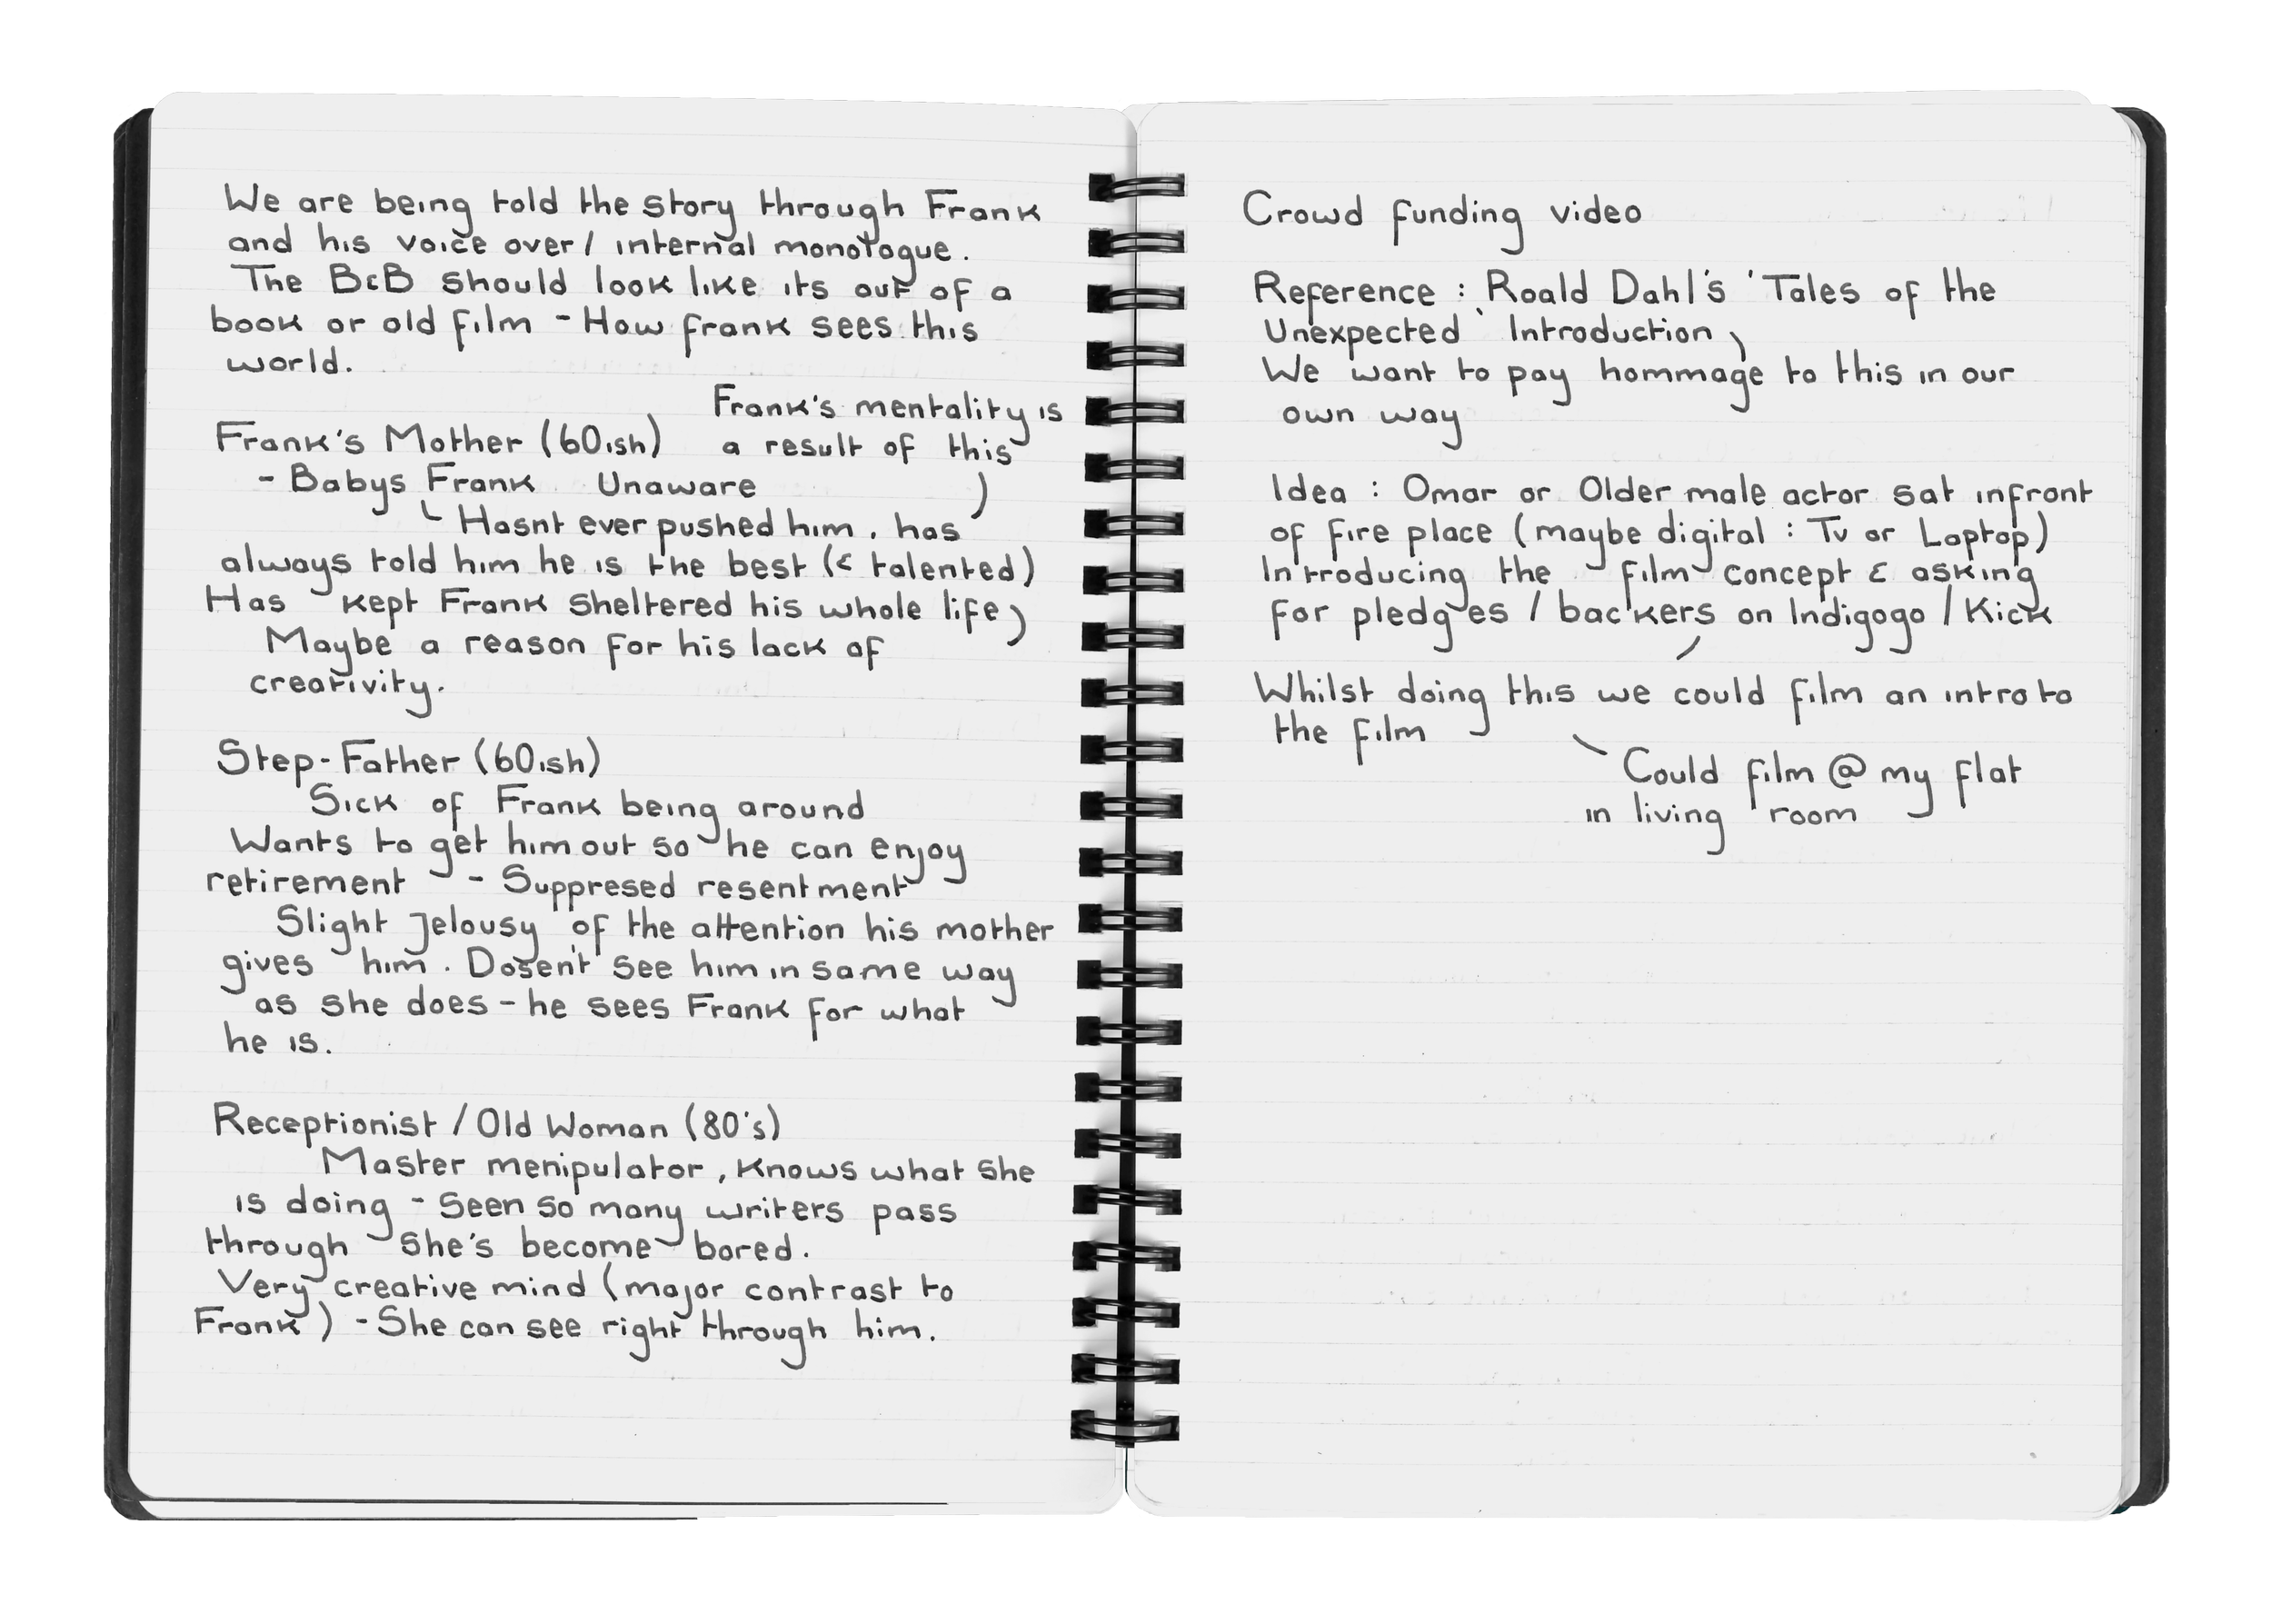 We are being told the story through Frank
and his voice over / internal monologue.
The B&B should look like its out of a
book or old film - How frank sees this
world.
Frank's mentality is
a result of this
Frank's Mother (60ish)
- Babys Frank Unaware
Hasnt ever pushed him, has
always told him he is the best (& talented)
Has kept Frank sheltered his whole life
Maybe a reason for his lack of
creativity.
Step-Father (60ish)
Sick of Frank being around
Wants to get him out so he can enjoy
retirement - Suppresed resentment
Slight Jelousy of the attention his mother
gives him. Dosen't see him in same way
as she does - he sees Frank for what
he is.
Receptionist / Old Woman (80's)
Master menipulator, knows what she
is doing - Seen so many writers pass
through she's become bored.
Very creative mind (major contrast to
Frank) - She can see right through him.
Crowd funding video
Reference : Roald Dahl's 'Tales of the
Unexpected' Introduction
We want to pay hommage to this in our
own way
Idea : Omar or Older male actor sat infront
of fire place (maybe digital : Tv or Laptop)
Introducing the film concept & asking
for pledges / backers on Indigogo / Kick
Whilst doing this we could film an intro to
the film
Could film @ my flat
in living room